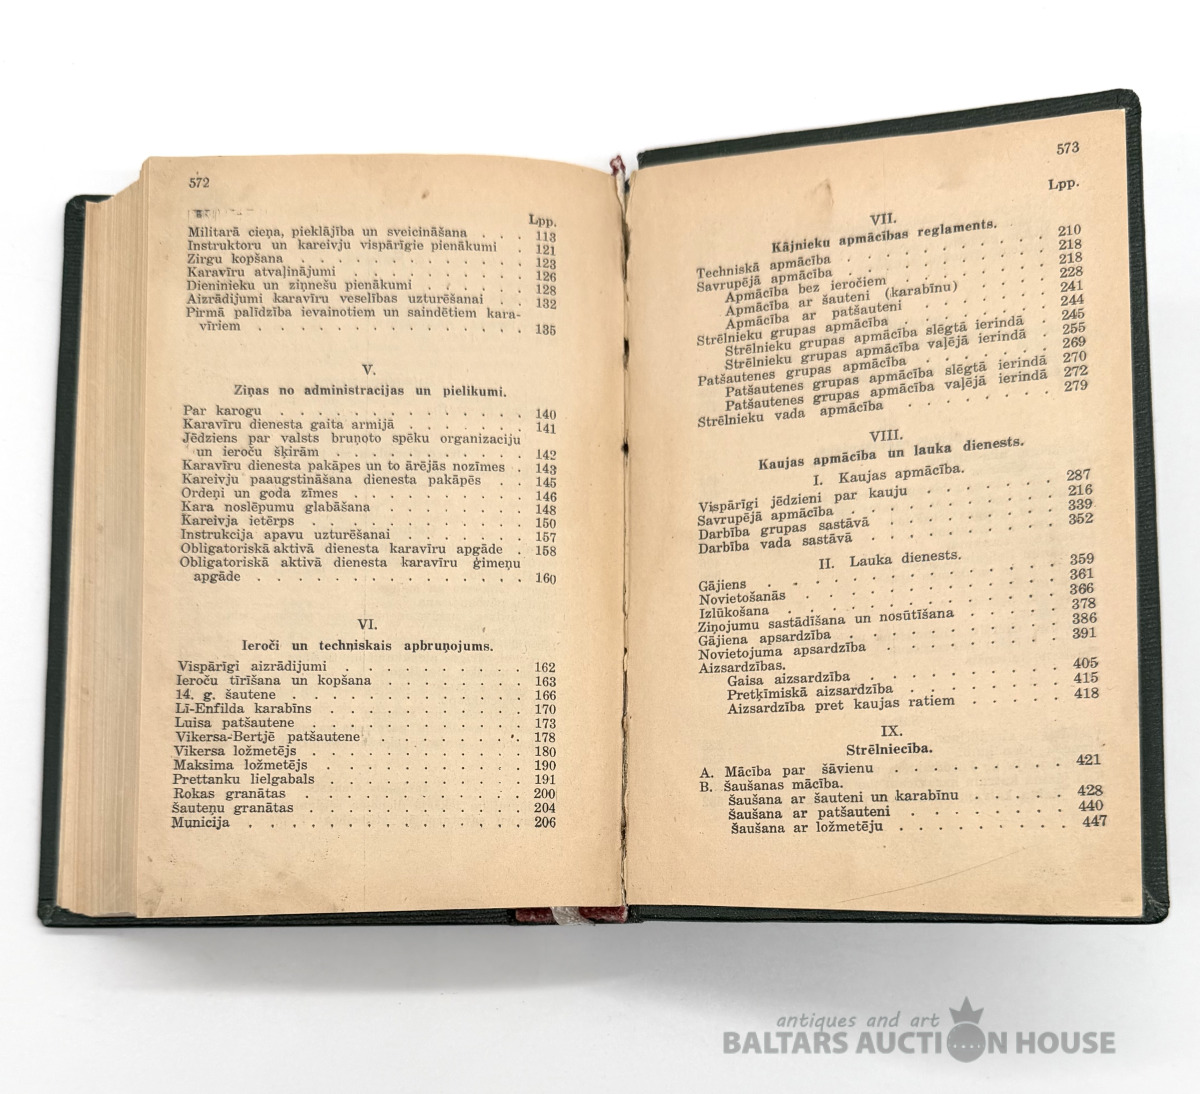 572
Lpp.
Militarā cieņa, pieklājība un sveicināšana . . . 113
Instruktoru un kareivju vispārīgie pienākumi . 121
Zirgu kopšana . . . . . . . . . . 123
Karavīru atvaļinājumi . . . . . . . . 126
Dieninieku un ziņnešu pienākumi . . . . . 128
Aizrādijumi karavīru veselības uzturēšanai . . 132
Pirmā palīdzība ievainotiem un saindētiem kara-
vīriem . . . . . . . . . . . . . 135
V.
Ziņas no administracijas un pielikumi.
Par karogu . . . . . . . . . . . . 140
Karavīru dienesta gaita armijā . . . . . . 141
Jēdziens par valsts bruņoto spēku organizaciju
un ieroču šķirām . . . . . . . . . 142
Karavīru dienesta pakāpes un to ārējās nozīmes . 143
Kareivju paaugstināšana dienesta pakāpēs . . 145
Ordeņi un goda zīmes . . . . . . . . 146
Kara noslēpumu glabāšana . . . . . . . 148
Kareivja ietērps . . . . . . . . . . 150
Instrukcija apavu uzturēšanai . . . . . . 157
Obligatoriskā aktivā dienesta karavīru apgāde . 158
Obligatoriskā aktivā dienesta karavīru ģimeņu
apgāde . . . . . . . . . . . . . 160
VI.
Ieroči un techniskais apbruņojums.
Vispārīgi aizrādijumi . . . . . . . . . 162
Ieroču tīrīšana un kopšana . . . . . . . 163
14. g. šautene . . . . . . . . . . . 166
Lī-Enfilda karabīns . . . . . . . . . 170
Luisa patšautene . . . . . . . . . . 173
Vikersa-Bertjē patšautene . . . . . . . 178
Vikersa ložmetējs . . . . . . . . . . 180
Maksima ložmetējs . . . . . . . . . . 190
Prettanku lielgabals . . . . . . . . . 191
Rokas granātas . . . . . . . . . . . 200
Šauteņu granātas . . . . . . . . . . 204
Municija . . . . . . . . . . . . . 206
573
Lpp.
VII.
Kājnieku apmācības reglaments.
Techniskā apmācība . . . . . . . . . 210
Savrupējā apmācība . . . . . . . . . 218
Apmācība bez ieročiem . . . . . . . 218
Apmācība ar šauteni (karabīnu) . . . . 228
Apmācība ar patšauteni . . . . . . . 241
Strēlnieku grupas apmācība . . . . . . 244
Strēlnieku grupas apmācība slēgtā ierindā . 245
Strēlnieku grupas apmācība vaļējā ierindā . 255
Patšautenes grupas apmācība . . . . . . 269
Patšautenes grupas apmācība slēgtā ierindā 270
Patšautenes grupas apmācība vaļējā ierindā 272
Strēlnieku vada apmācība . . . . . . . 279
VIII.
Kaujas apmācība un lauka dienests.
I. Kaujas apmācība.
Vispārīgi jēdzieni par kauju . . . . . . 287
Savrupējā apmācība . . . . . . . . . 216
Darbība grupas sastāvā . . . . . . . . 339
Darbība vada sastāvā . . . . . . . . . 352
II. Lauka dienests.
Gājiens . . . . . . . . . . . . . 359
Novietošanās . . . . . . . . . . . 361
Izlūkošana . . . . . . . . . . . . 366
Ziņojumu sastādīšana un nosūtīšana . . . . 378
Gājiena apsardzība . . . . . . . . . 386
Novietojuma apsardzība . . . . . . . . 391
Aizsardzības.
Gaisa aizsardzība . . . . . . . . . 405
Pretķīmiskā aizsardzība . . . . . . . 415
Aizsardzība pret kaujas ratiem . . . . 418
IX.
Strēlniecība.
A. Mācība par šāvienu . . . . . . . . 421
B. Šaušanas mācība.
Šaušana ar šauteni un karabīnu . . . . . 428
Šaušana ar patšauteni . . . . . . . . 440
Šaušana ar ložmetēju . . . . . . . . 447
antiques and art
BALTARS AUCTION HOUSE